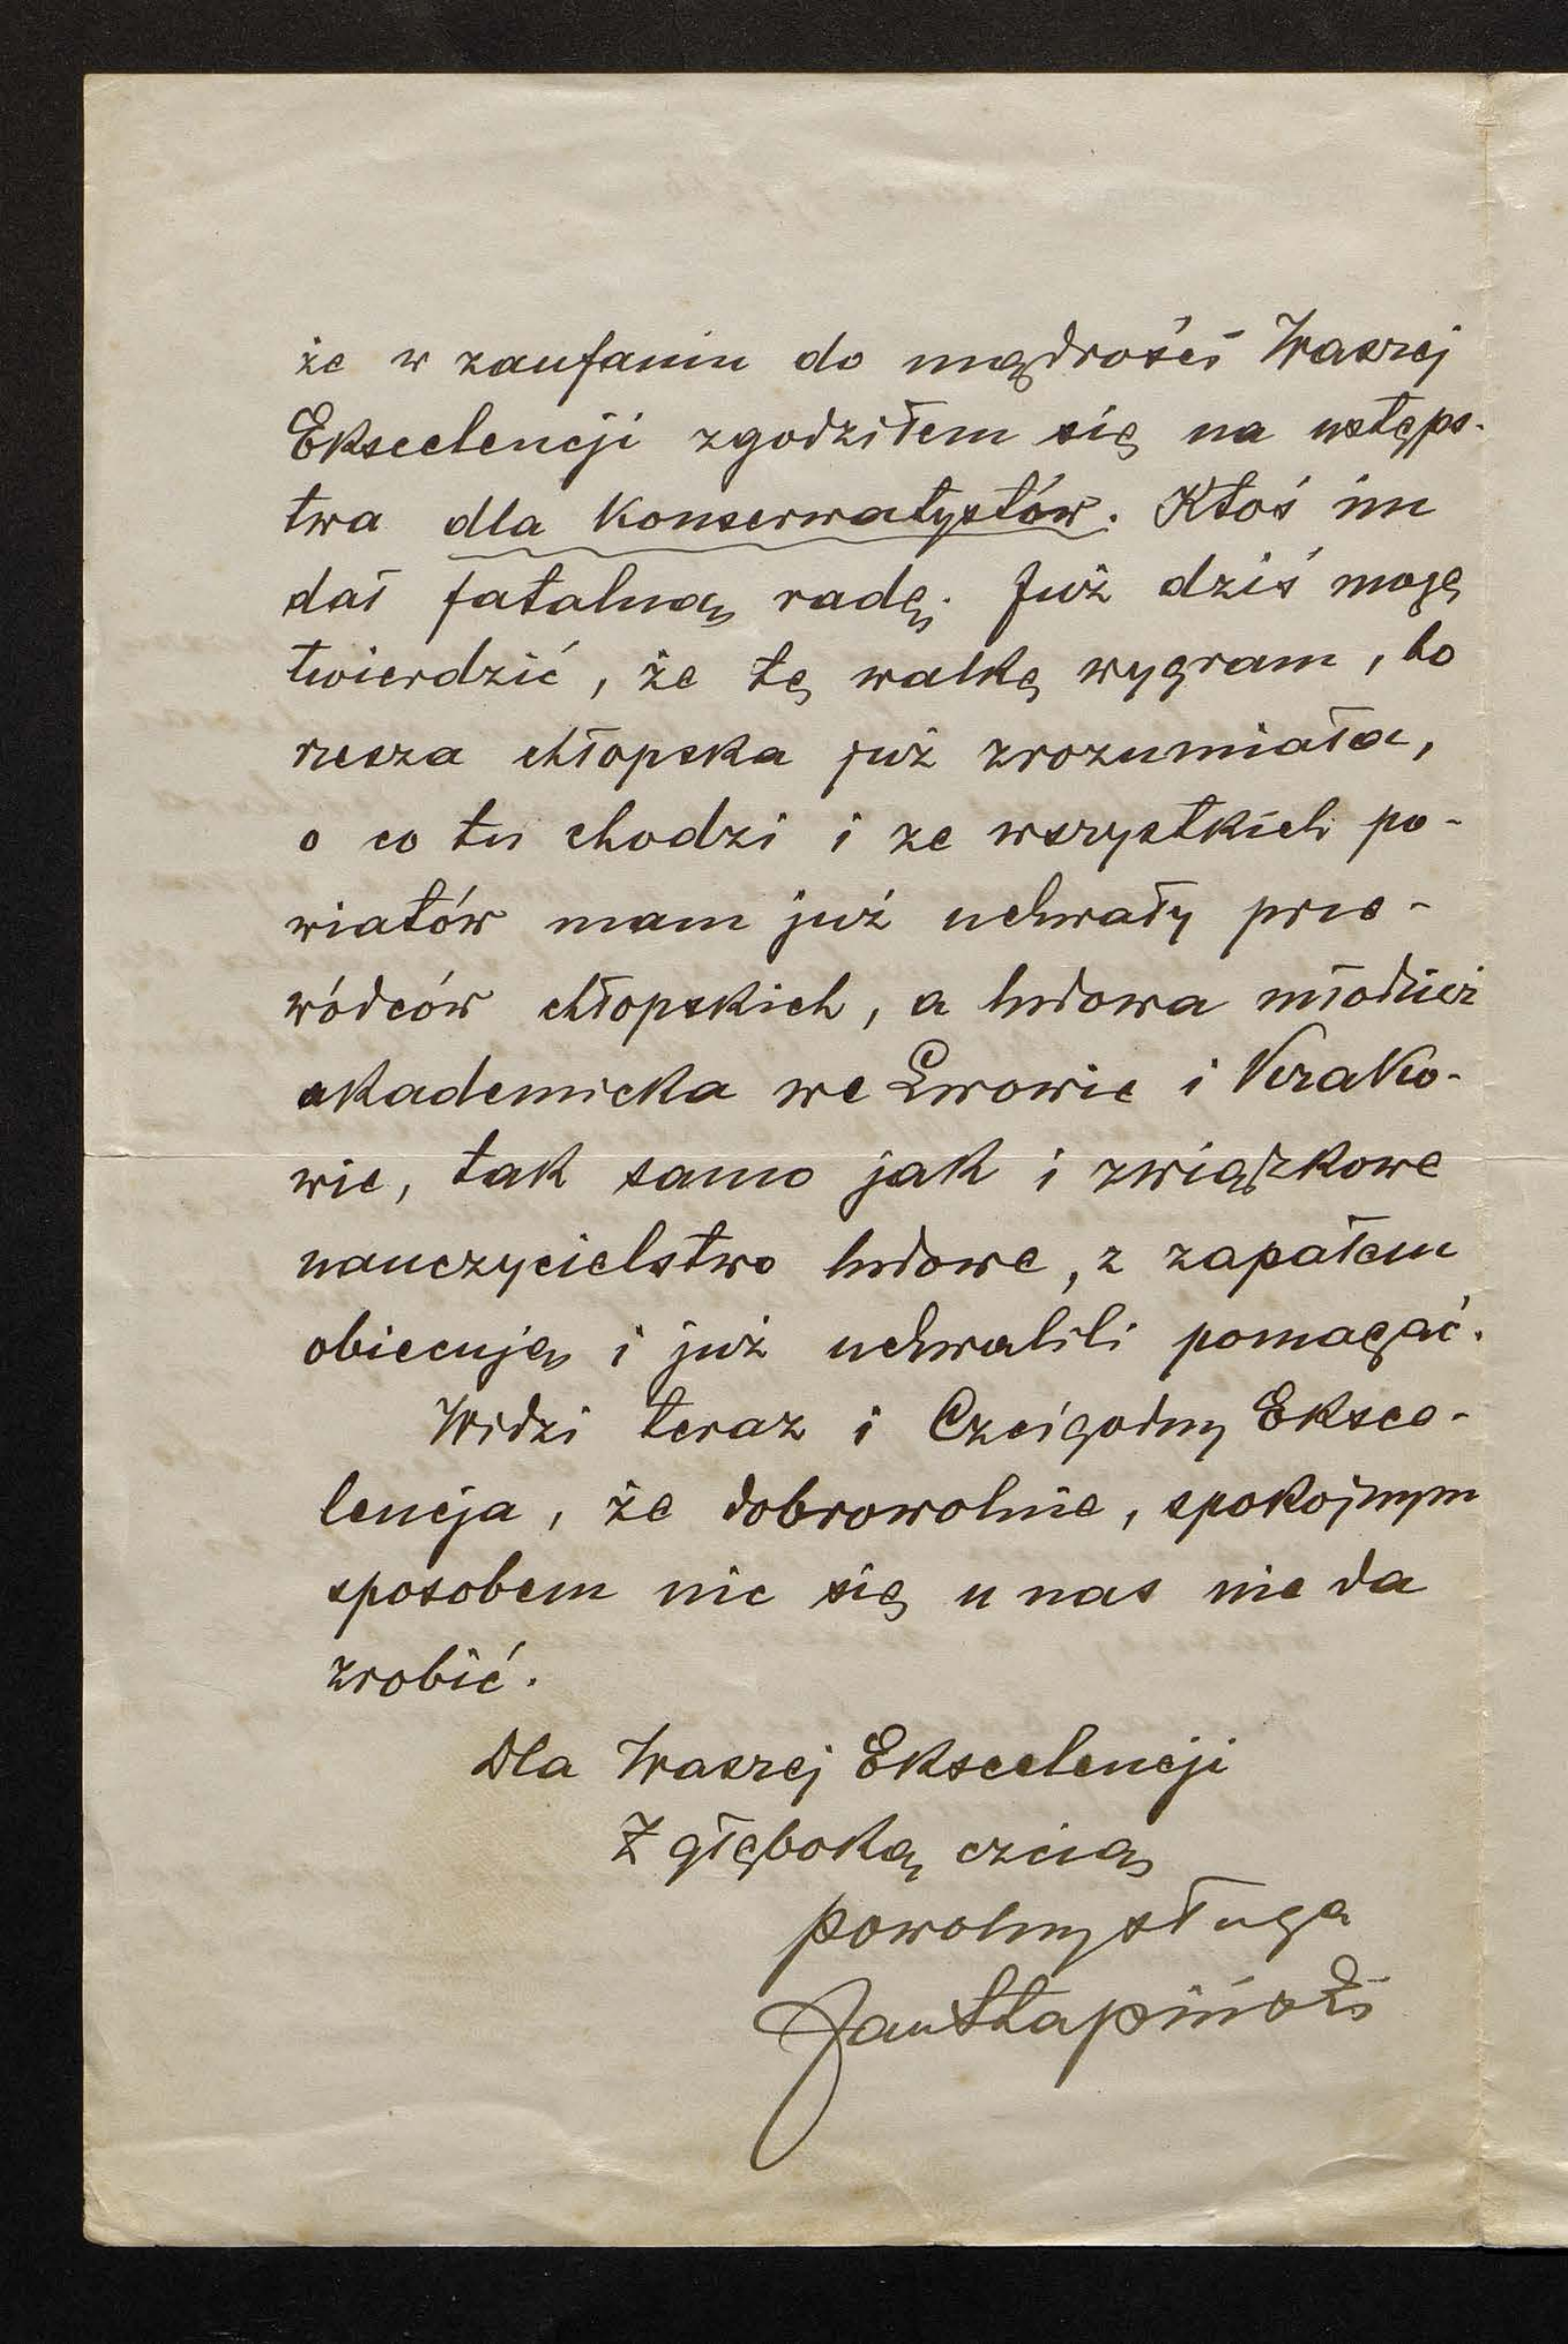 że w zaufaniu do mądrości Waszej
Ekscelencji zgodziłem się na ustęps-
twa dla Konserwatystów. Ktoś im
dał fatalną radę. Już dziś mogę
twierdzić, że tę walkę wygram, bo
rzesza chłopska już zrozumiała,
o co tu chodzi i ze wszystkich po-
wiatów mam już uchwały prze-
wódców chłopskich, a ludowa młodzież
akademicka we Lwowie i Krako-
wie, tak samo jak i związkowe
nauczycielstwo ludowe, z zapałem
obiecują i już uchwalili pomagać.
Widzi teraz i Czcigodny Eksce-
lencja, że dobrowolnie, spokojnym
sposobem nic się u nas nie da
zrobić.
Dla Waszej Ekscelencji
Z głęboką czcią
powolny sługa
Jan Stapiński